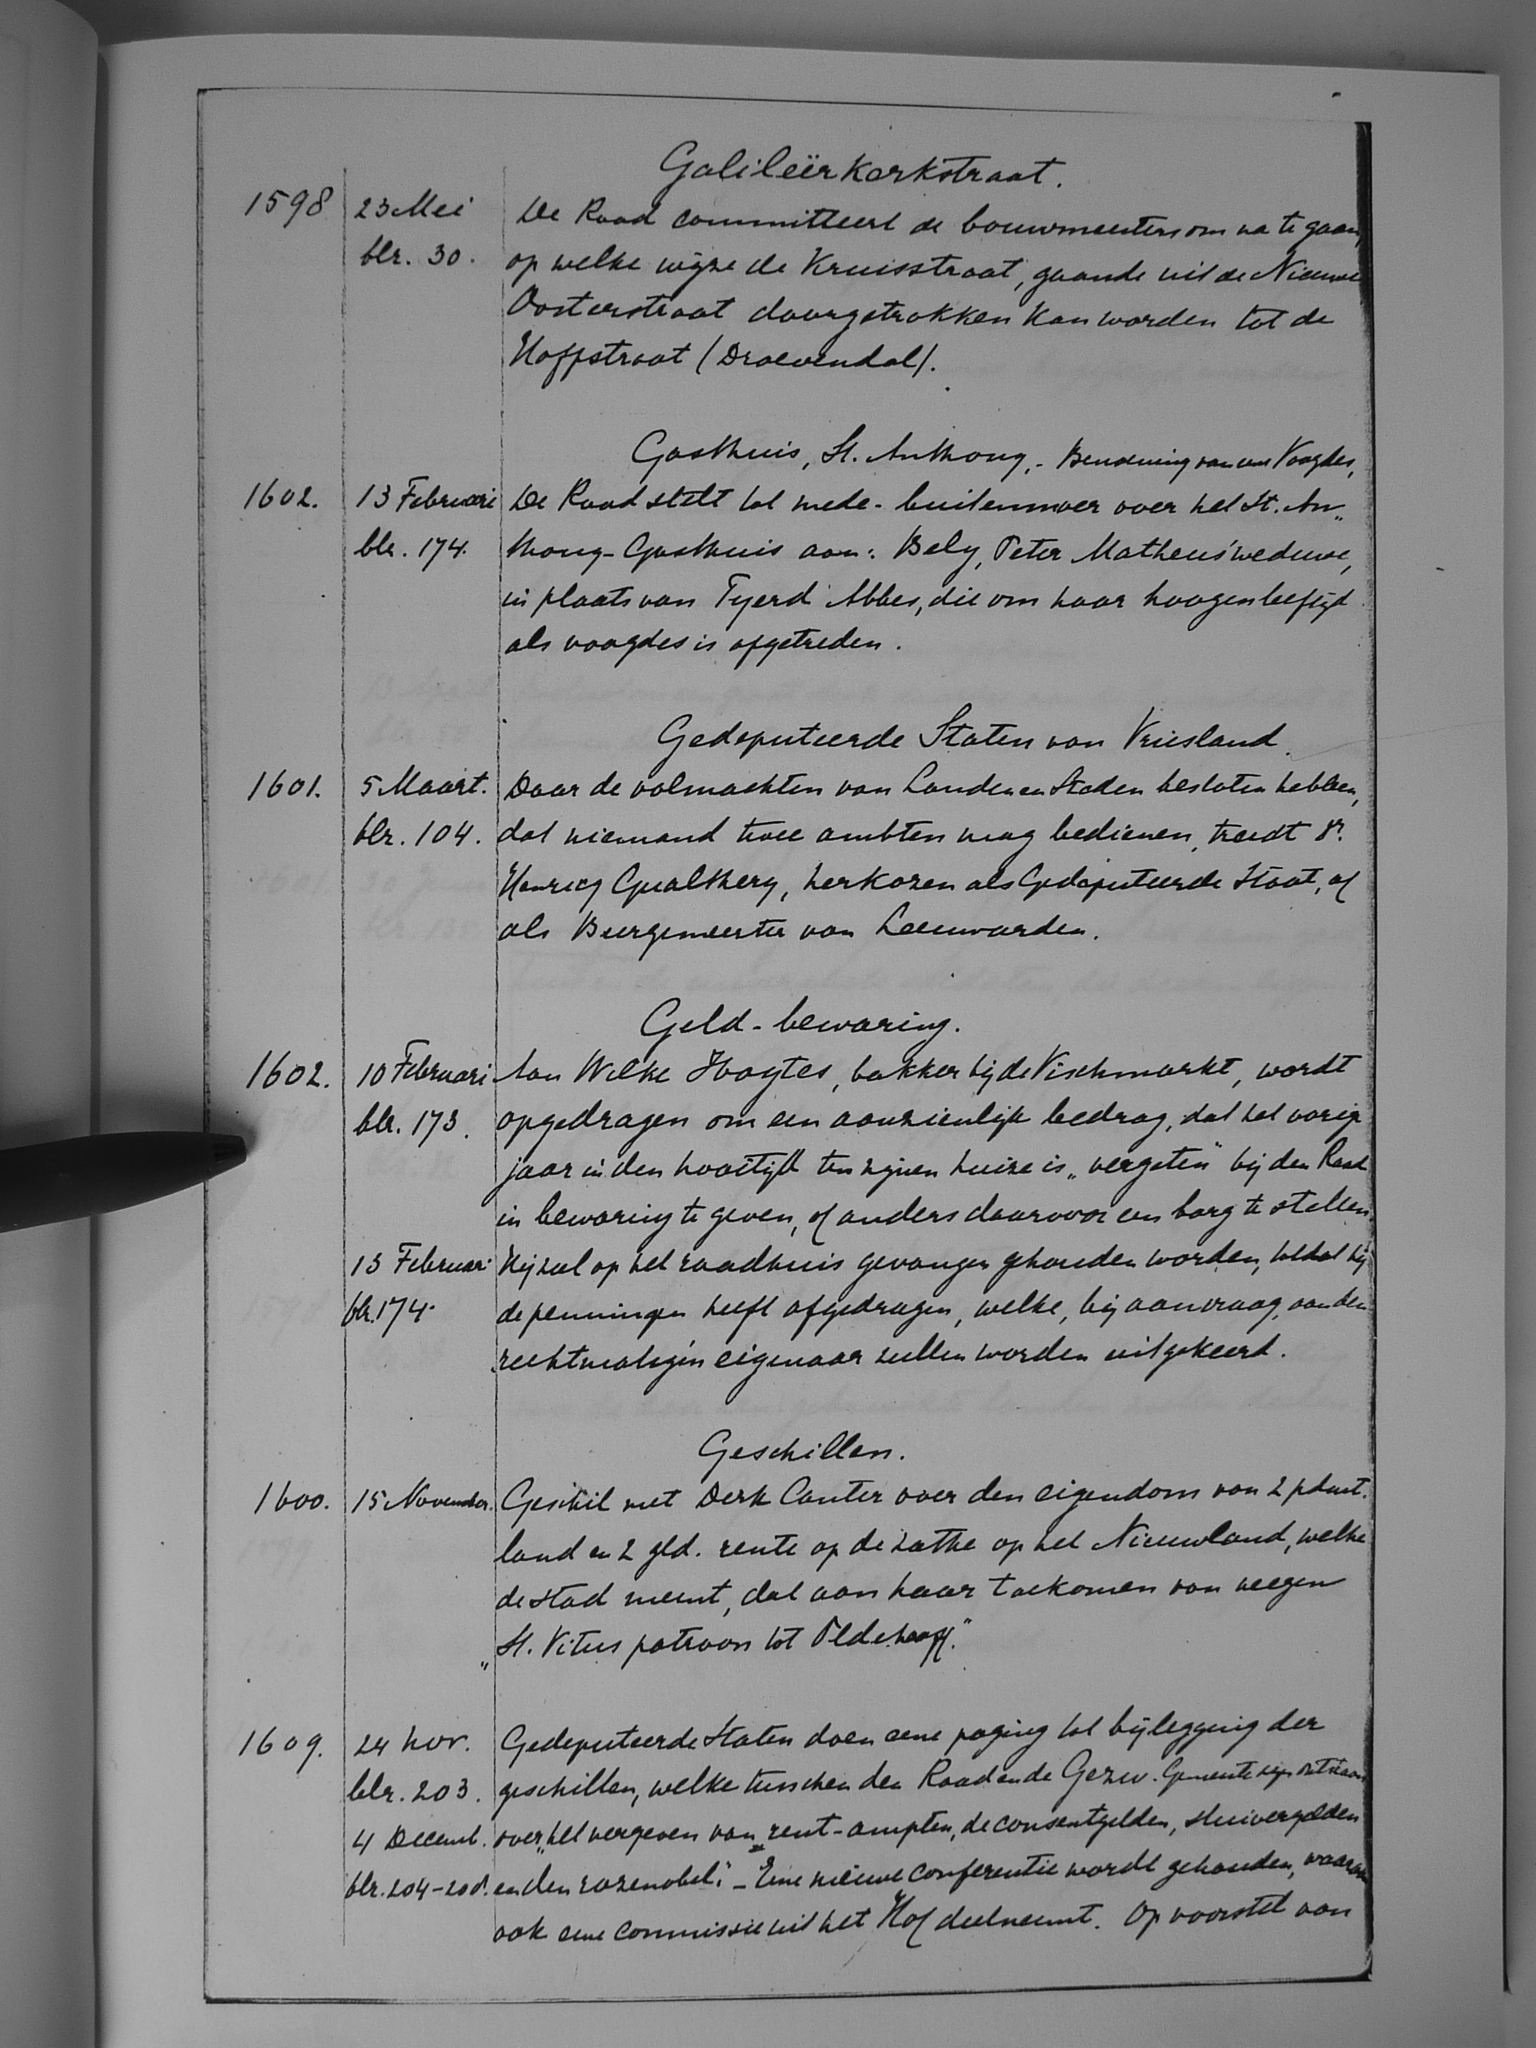 Galileërkerkstraat.
1598 23 Mei De Raad committeert de bouwmeesters om na te gaan,
blz. 30. op welke wijze de Kruisstraat, gaande uit de Nieuwe
Oosterstraat doorgetrokken kan worden tot de
Hoffstraat (Droevendal).
Gasthuis, St. Anthony, - Benoeming van een Voogdes,
1602. 13 Februari De Raad stelt tot mede-buitenmoer over het St. An„
blz. 174. thony-Gasthuis aan: Bely, Peter Matheus' weduwe,
in plaats van Tyerd Abbes, die om haar hoogen leeftijd
als voogdes is afgetreden.
Gedeputeerde Staten van Vriesland.
1601. 5 Maart. Daar de volmachten van Landen en Steden besloten hebben,
blz. 104. dat niemand twee ambten mag bedienen, treedt Dr.
Henricy Gualthery, herkozen als Gedeputeerde Staat, af
als Burgemeester van Leeuwarden.
Geld-bewaring.
1602. 10 Februari Aan Wilke Hoytes, bakker bij de Vischmarkt, wordt
blz. 173. opgedragen om een aanzienlijk bedrag, dat het vorig
jaar in den hooitijd ten zijnen huize is „vergeten" bij den Raad
in bewaring te geven, of anders daarvoor een borg te stellen.
13 Februari Hij zal op het raadhuis gevangen gehouden worden, totdat hij
blz. 174. de penningen heeft afgedragen, welke, bij aanvraag, aan den
rechtmatigen eigenaar zullen worden uitgekeerd.
Geschillen.
1600. 15 November. Geschil met Derk Canter over den eigendom van 2 pdmt.
land en 2 gld. rente op de zathe op het Nieuwland, welke
de stad meent, dat aan haar toekomen van weegen
„St. Vitus patroon tot Oldehooff."
1609. 24 Nov. Gedeputeerde Staten doen eene poging tot bijlegging der
blz. 203. geschillen, welke tusschen den Raad en de Gezw. Gemeente zijn ontstaan
4 Decemb. over „het vergeven van rent-ampten, de consentgelden, stuivergelden
blz. 204-208. en den rozenobel." - Eene nieuwe conferentie wordt gehouden, waaraan
ook eene commissie uit het Hof deelneemt. Op voorstel van